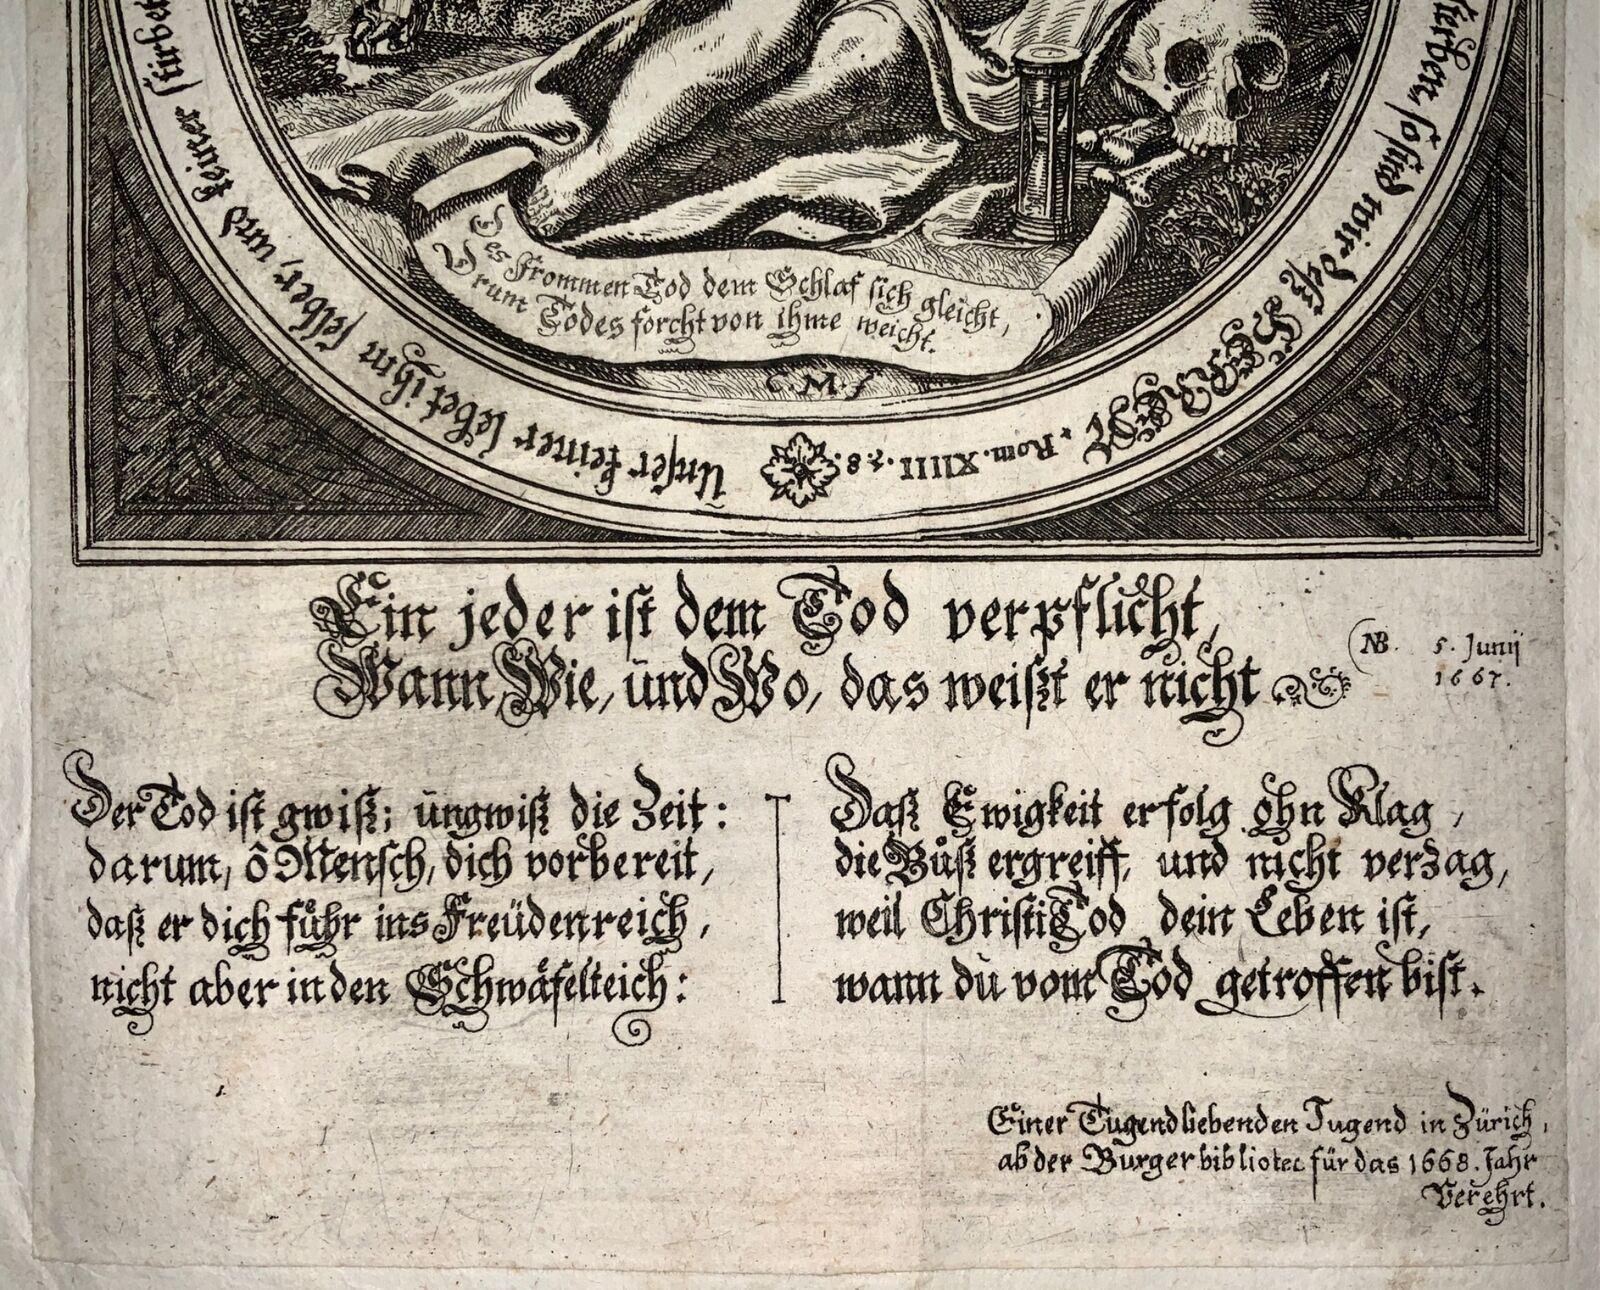 Unser keiner lebet ihm selber, und keiner stirbet
sterben, so sind wir deß HERREN. Rom. XIIII. 7. 8.
Des Frommen Tod dem Schlaf sich gleicht,
Drum Todes forcht von ihme weicht.
C. M. f
Ein jeder ist dem Tod verpflicht,
Wann, Wie, und Wo, das weißt er nicht
NB. 5. Junij
1667.
Der Tod ist gwiß; ungwiß die Zeit:
darum, ô Mensch, dich vorbereit,
daß er dich führ ins Freüdenreich,
nicht aber in den Schwäfelteich:
Daß Ewigkeit erfolg ohn Klag,
die Bůß ergreiff, und nicht verzag,
weil Christi Tod dein Leben ist,
wann du vom Tod getroffen bist.
Einer Tugendliebenden Jugend in Zürich,
ab der Burgerbibliotec für das 1668. Jahr
Verehrt.